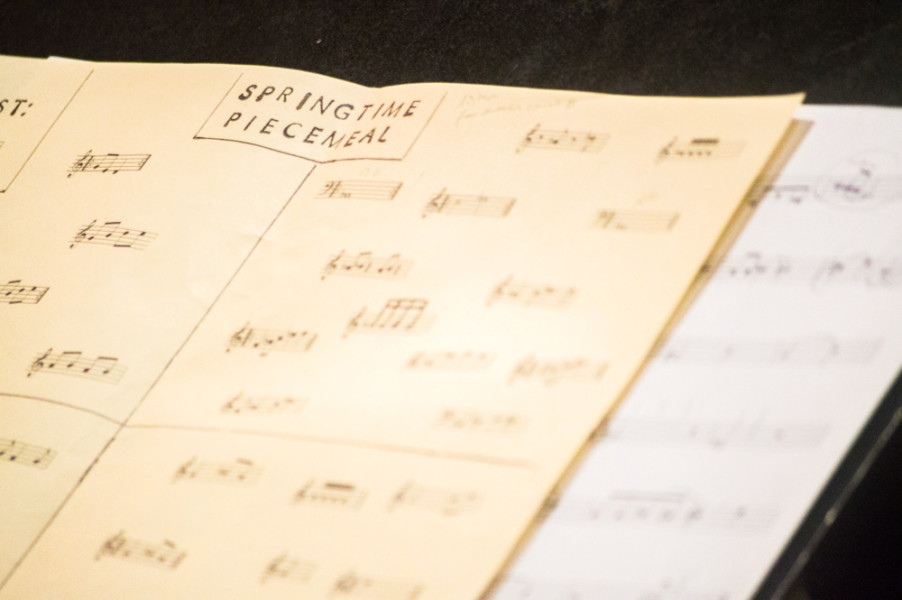 ST:
SPRINGTIME
PIECEMEAL